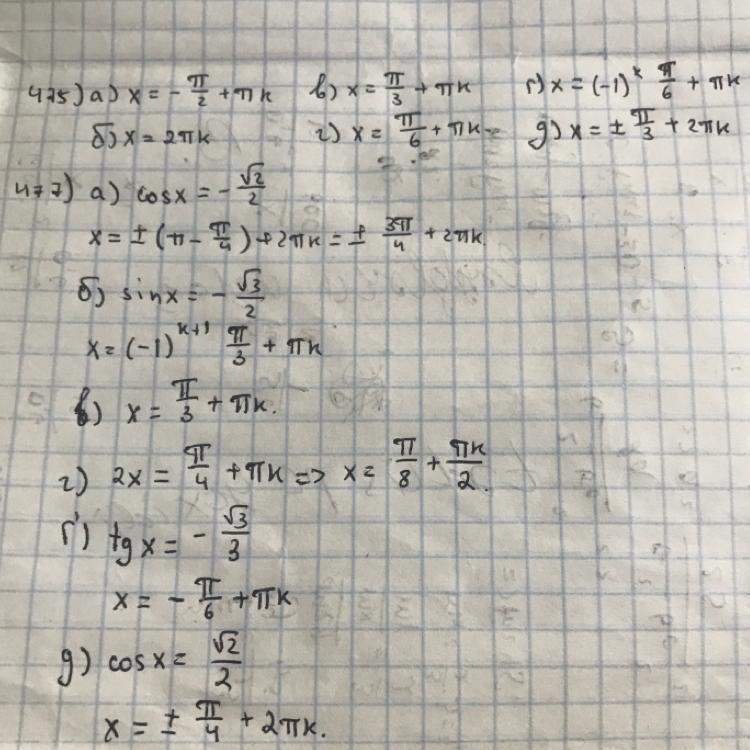 475) а) x = -π/2 + πк   в) x = π/3 + πк   ґ) x = (-1)^к π/6 + πк
б) x = 2πк   г) x = π/6 + πк   д) x = ± π/3 + 2πк
477) а) cosx = -√2/2
x = ± (π - π/4) + 2πк = ± 3π/4 + 2πк.
б) sinx = -√3/2
x = (-1)^(к+1) π/3 + πк
в) x = π/3 + πк.
г) 2x = π/4 + πк => x = π/8 + πк/2.
ґ) tgx = -√3/3
x = -π/6 + πк
д) cosx = √2/2
x = ± π/4 + 2πк.